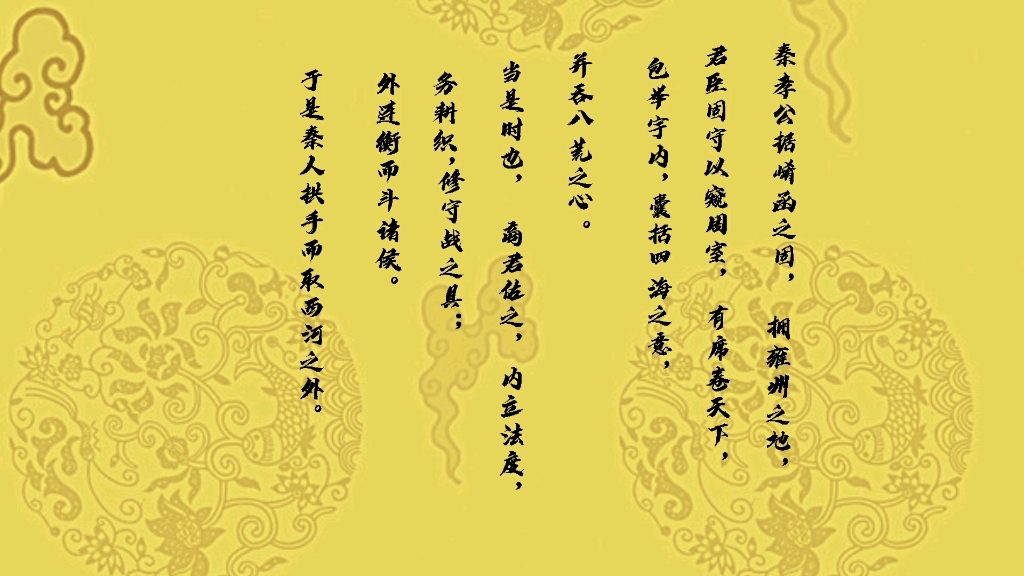 秦孝公据崤函之固，拥雍州之地，
君臣固守以窥周室，有席卷天下，
包举宇内，囊括四海之意，
并吞八荒之心。
当是时也，商君佐之，内立法度，
务耕织，修守战之具；
外连衡而斗诸侯。
于是秦人拱手而取西河之外。